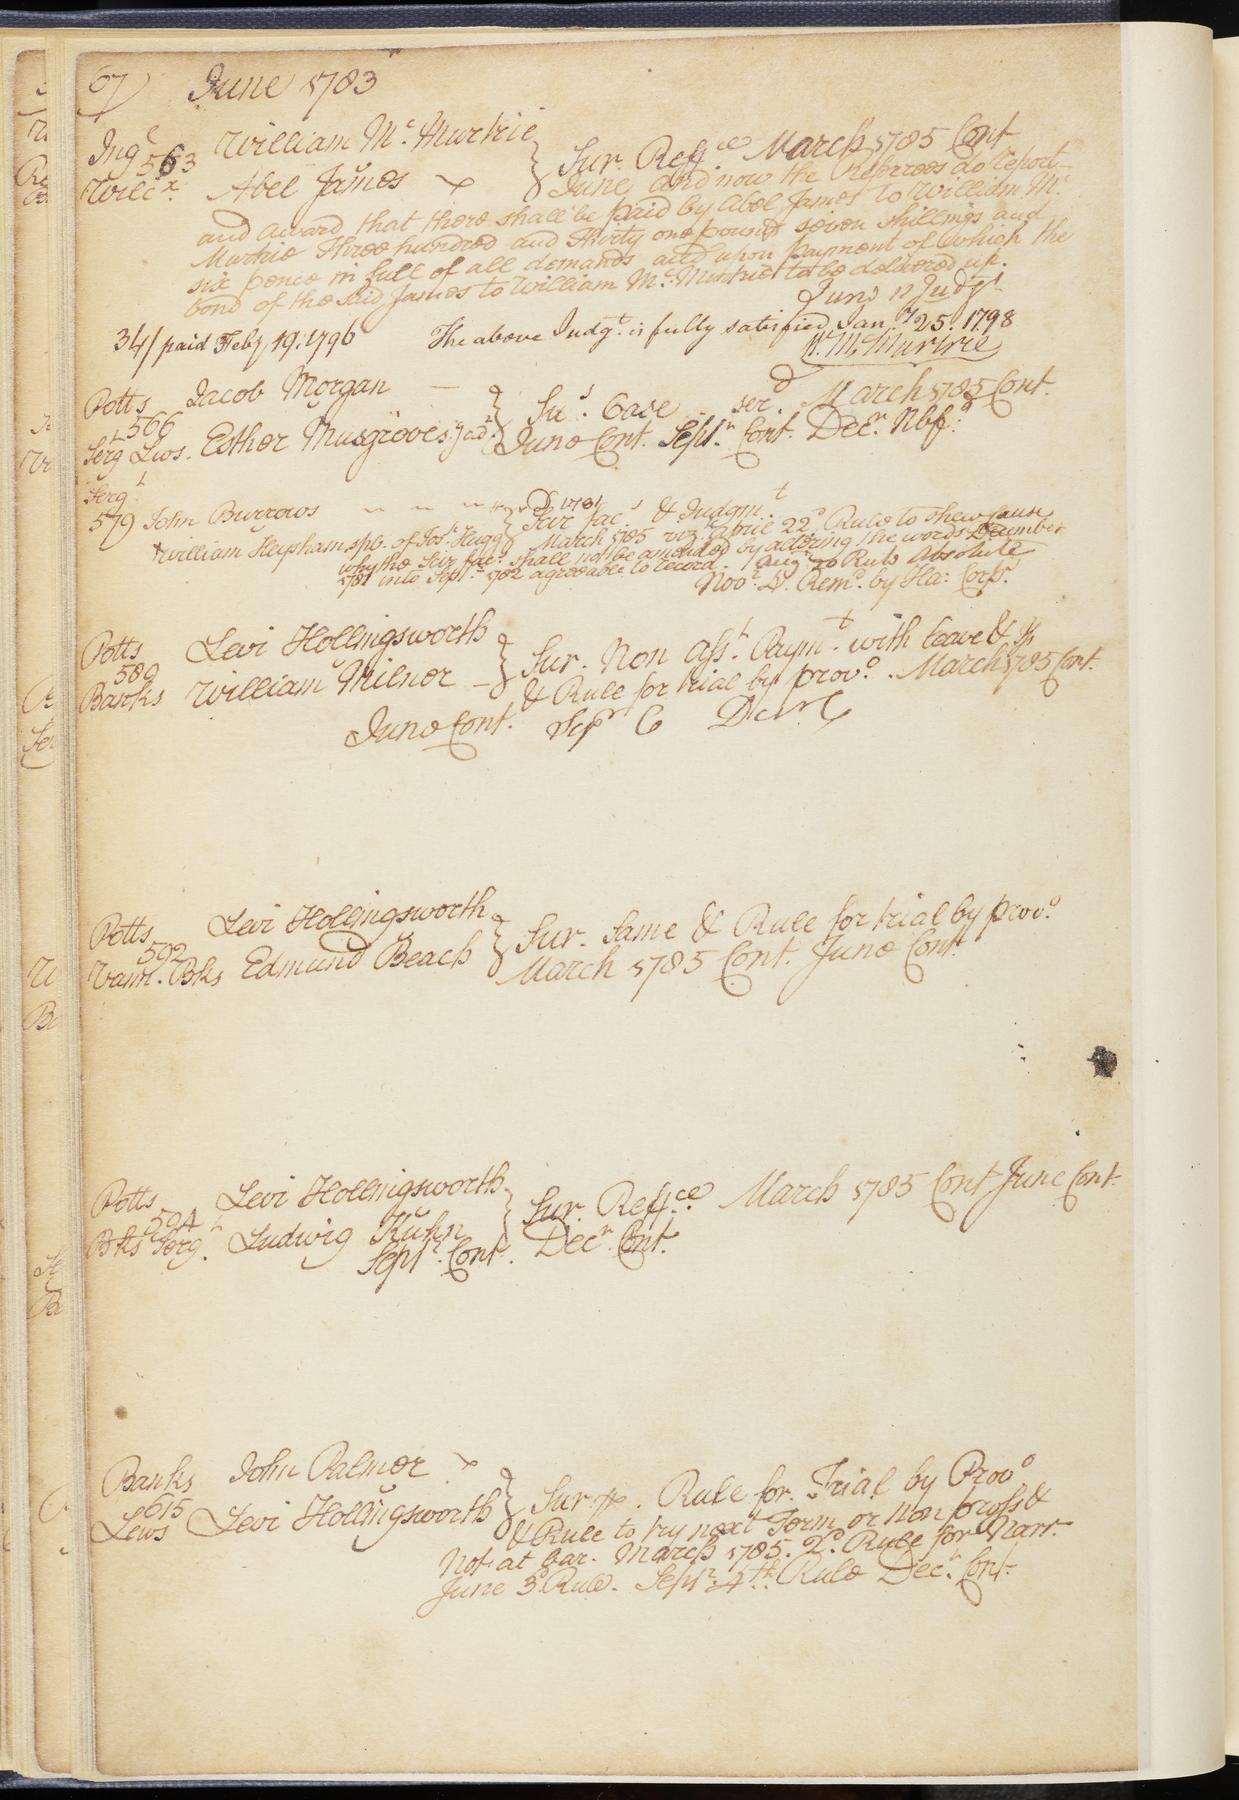 67) June 1783
Ing.l William Mc. Murtrie
563 Sur. Reff.ce March 1785 Cont
Wilc.x Abel James June and now the Referees do report
and award that there shall be paid by Abel James to William Mc.
Murtrie Three hundred and thirty one pounds seven shillings and
six pence in full of all demands and upon payment of which the
bond of the said James to William Mc. Murtrie to be delivered up.
June Judgt.
34/ paid Feby 19: 1796 The above Judgt. is fully satisfied Jany 25. 1798
W. McMurtrie
Potts Jacob Morgan
566 Sus. Case ser.d March 1785 Cont.
Serg.t Lws. Esther Musgroves June Cont. Sept.r Cont. Dec.r Nbf:
Serg.t
579 John Burrows D 1781 Scir facs & Judgm.t
William Heysham spb. of Jos.h Hugg March 1785 viz.t Aprie 22.d Rule to shew cause
why the Scir facs. shall not be amended by altering the words December
1781 into Sept.r 1782 agreeable to record. Aug.t 20 Rule Absolute
Nov.r Rem.d by Ha: Corps.
Potts Levi Hollingsworth
589 Sur. Non ass.t Paym.t with leave &
Banks William Milnor & Rule for trial by prov.o March 1785 Cont.
June Cont. Sepr C Decr C
Potts Levi Hollingsworth
592 Sur. Same & Rule for trial by prov.o
Vann. Bks Edmund Beach March 1785 Cont. June Cont.
Potts Levi Hollingsworth
594 Sur. Reff.ce March 1785 Cont June Cont.
Bks Serg.t Ludwig Kuhn
Sept.r Cont. Dec.r Cont.
Banks John Palmer
615 Sur. Rule for Trial by Prov.o
Lews Levi Hollingsworth & Rule to try next Term or non pross &
Not. at bar. March 1785. 2.d Rule for Narr.
June 3.d Rule. Sept.r 4th. Rule Dec.r Cont.